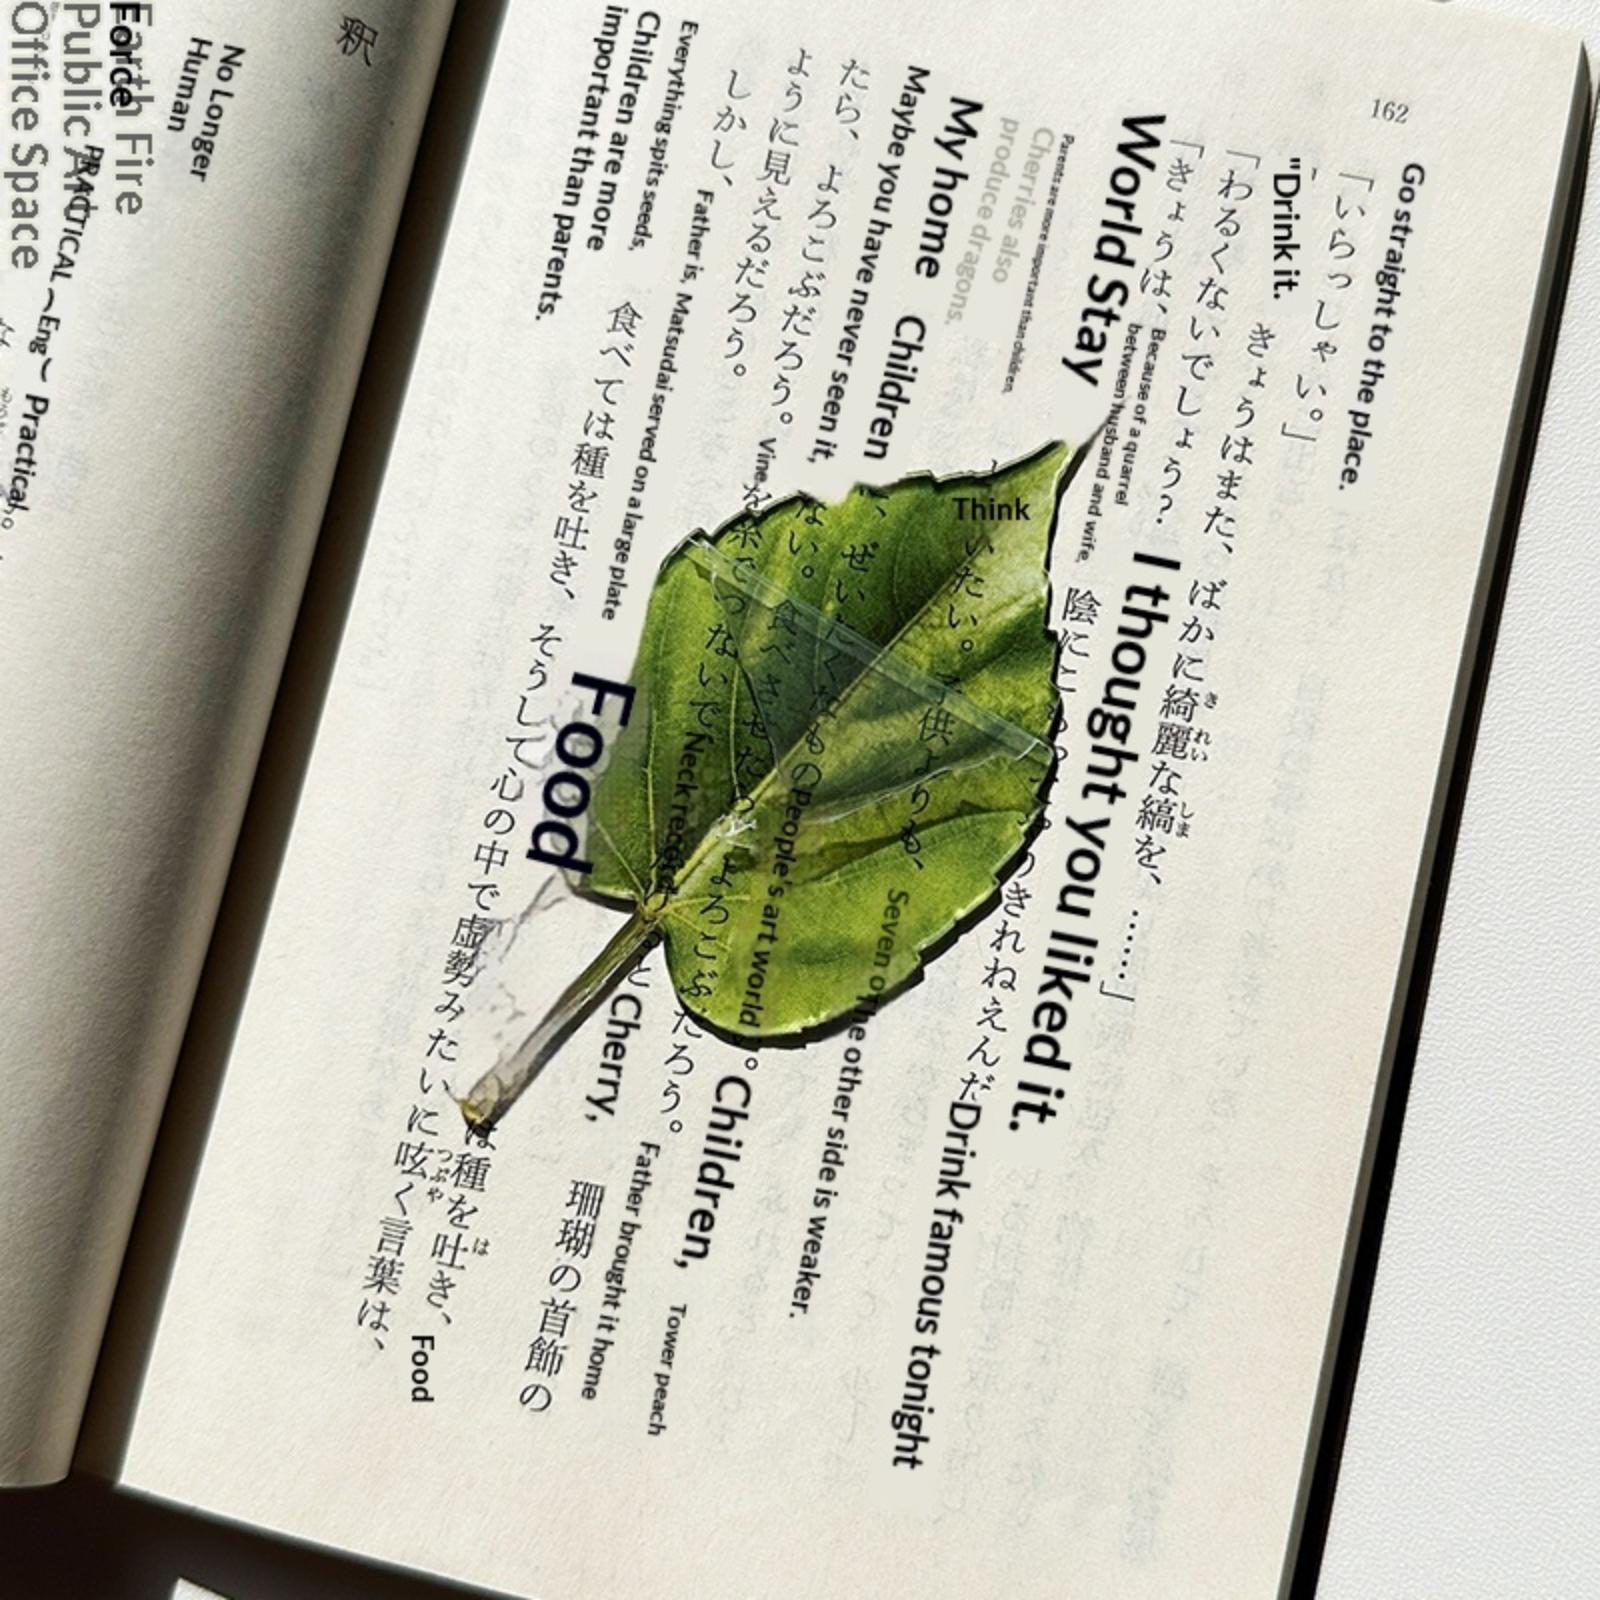 162
Go straight to the place.
「いらっしゃい。」
"Drink it.
きょうはまた、ばかに綺麗な縞を、……」
きれい
しま
「わるくないでしょう?
I thought you liked it.
「きょうは、
Because of a quarrel
between husband and wife,
陰にこ
きれねえんだ
World Stay
Drink famous tonight
Parents are more important than children,
Cherries also
produce dragons.
Think
いたい。子供よりも、
Seven of the other side is weaker.
My home
Children
、ぜいたくなもの
People's art world
。
Children,
Tower peach
Maybe you have never seen it,
ない。食べさせたら、よろこぶだろう。
Father brought it home
たら、よろこぶだろう。
Vine
を糸でつないで
Neck record
と
Cherry,
珊瑚の首飾の
ように見えるだろう。
しかし、
Father is,
Matsudai served on a large plate
Food
は種を吐き、
は
Food
Everything spits seeds,
食べては種を吐き、そうして心の中で虚勢みたいに呟く言葉は、
つぶや
Children are more
important than parents.
釈
No Longer
Human
Earth Fire
Force
Public Art
PRACTICAL
~Eng~
Practical
Office Space